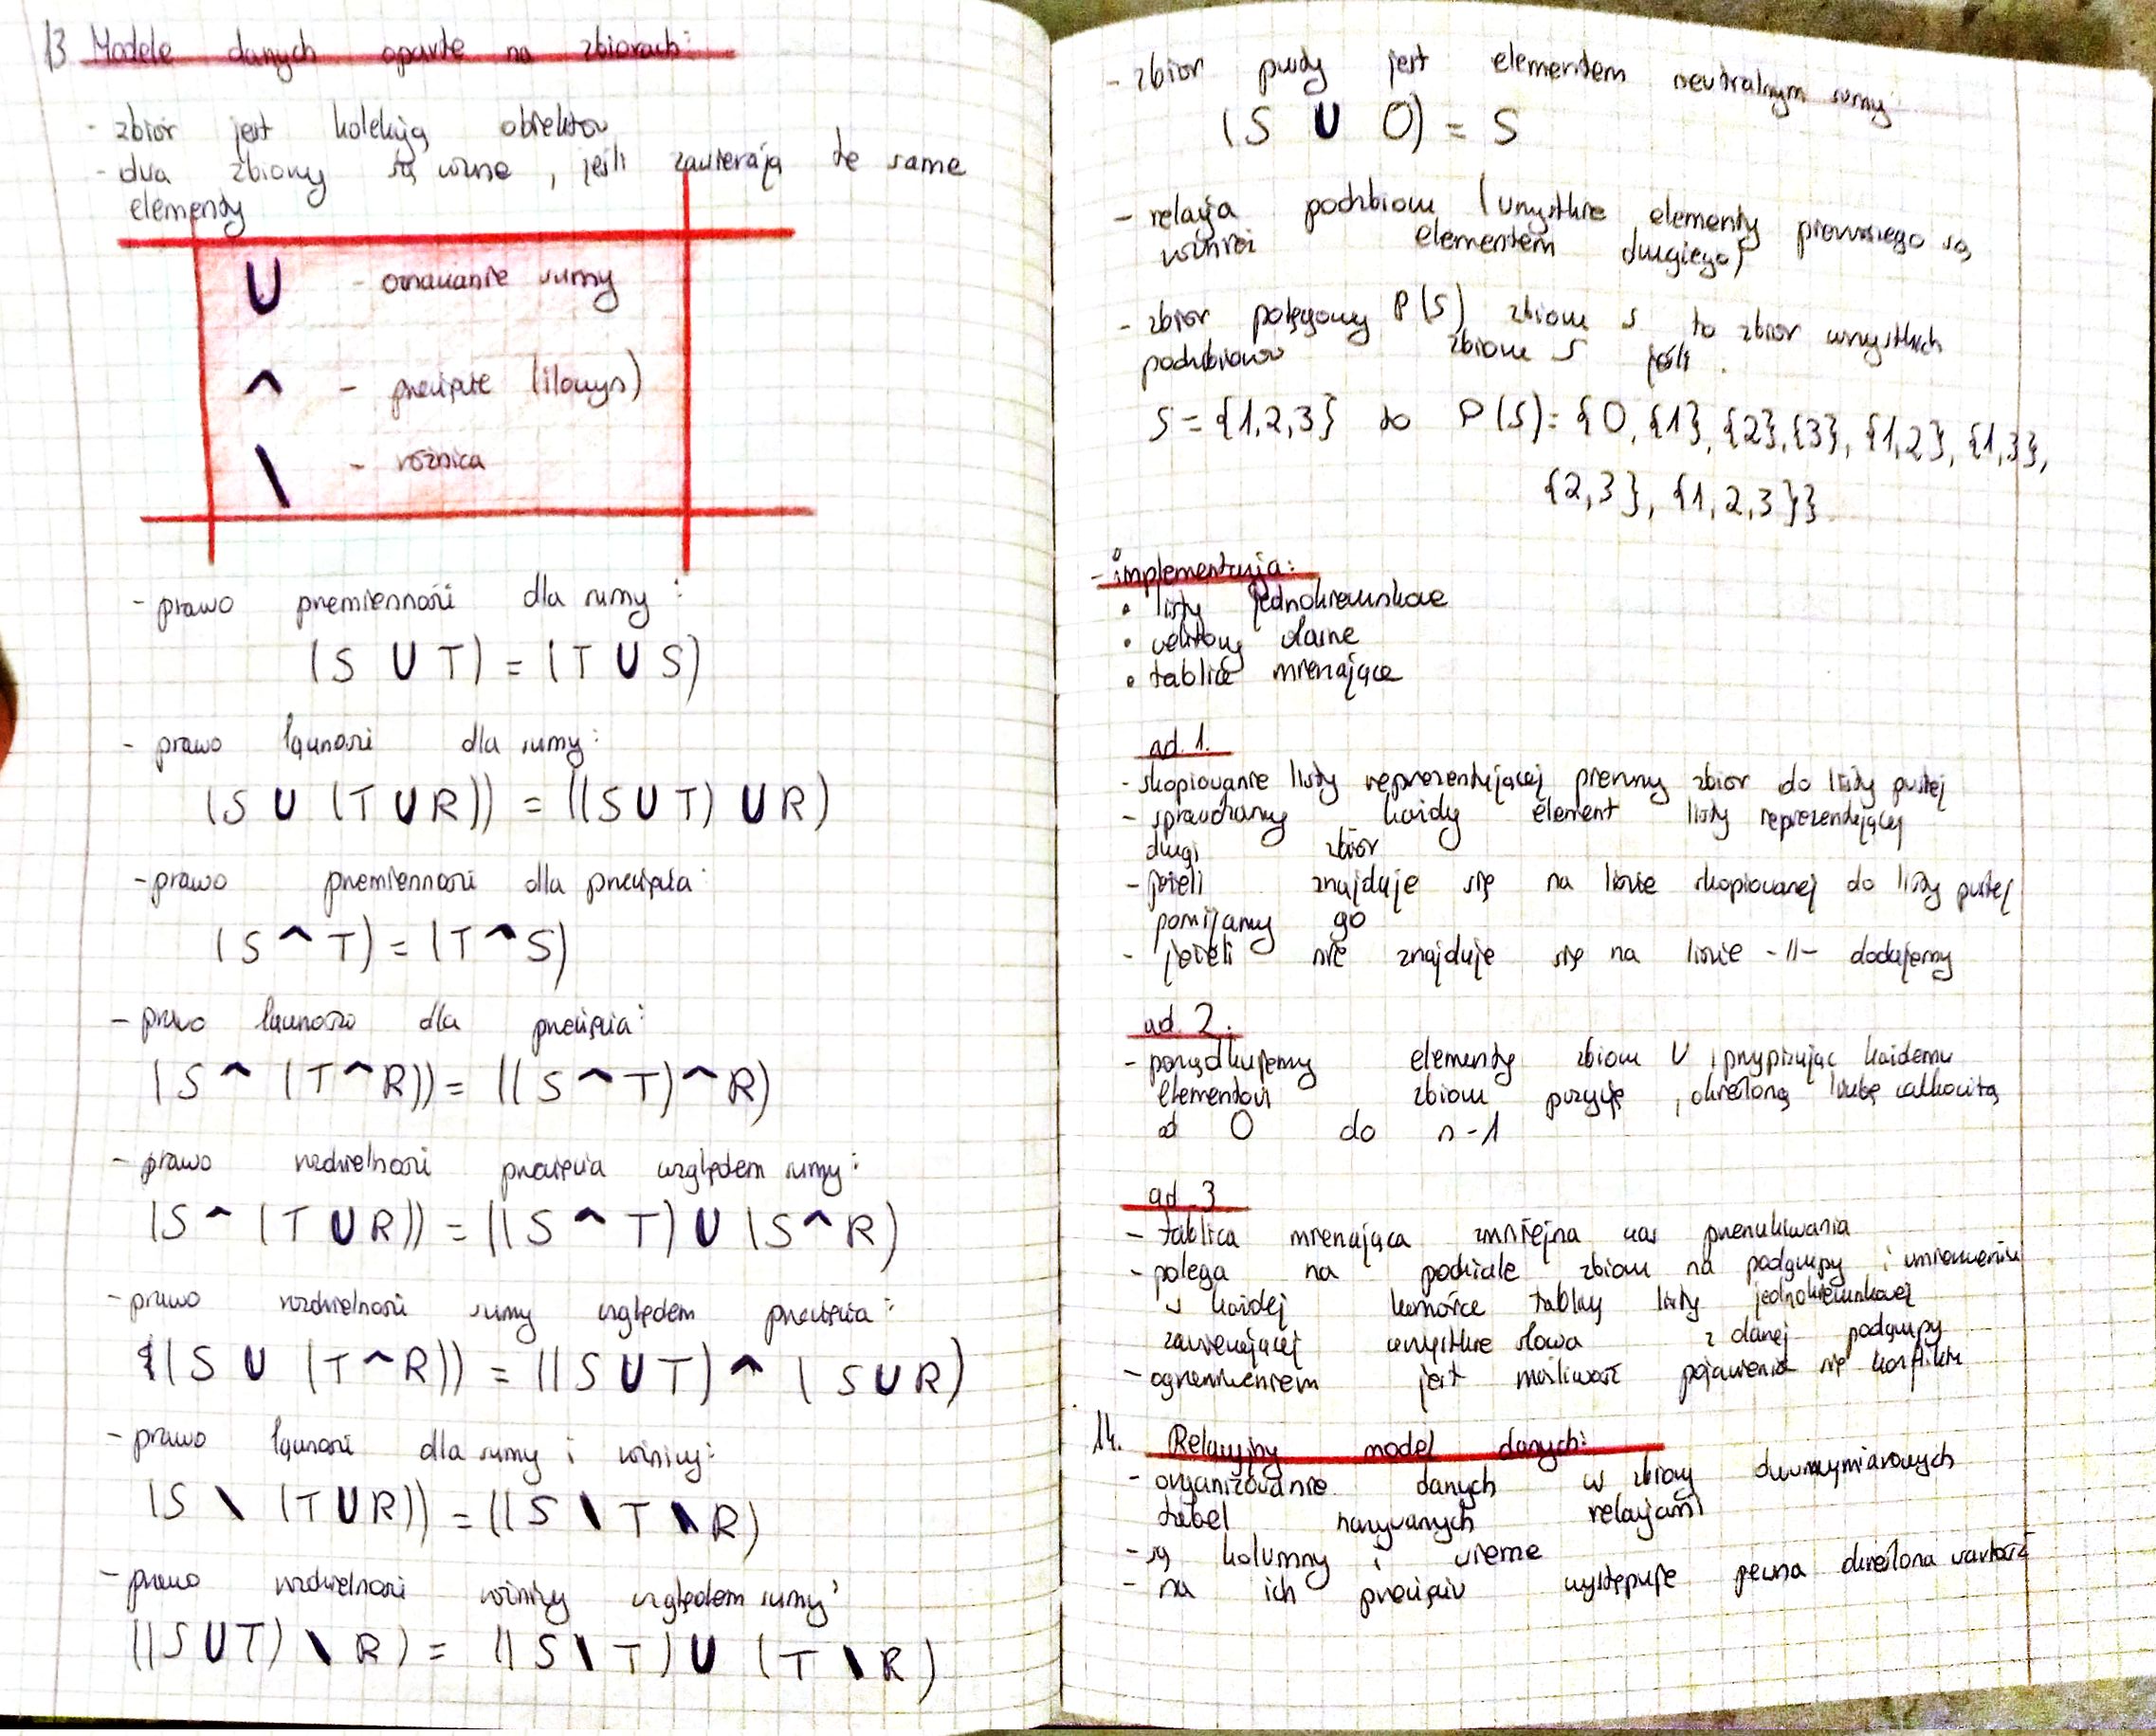 13 Modele danych oparte na zbiorach:
- zbiór jest kolekcją obiektów
- dwa zbiory są równe, jeśli zawierają te same
elementy
U - oznaczanie sumy
^ - przecięcie (iloczyn)
\ - różnica
- prawo przemienności dla sumy:
(S U T) = (T U S)
- prawo łączności dla sumy:
(S U (T U R)) = ((S U T) U R)
- prawo przemienności dla przecięcia:
(S ^ T) = (T ^ S)
- prawo łączności dla przecięcia:
(S ^ (T ^ R)) = ((S ^ T) ^ R)
- prawo rozdzielności przecięcia względem sumy:
(S ^ (T U R)) = ((S ^ T) U (S ^ R)
- prawo rozdzielności sumy względem przecięcia:
((S U (T ^ R)) = ((S U T) ^ (S U R)
- prawo łączności dla sumy i różnicy:
(S \ (T U R)) = ((S \ T \ R)
- prawo rozdzielności różnicy względem sumy:
((S U T) \ R) = ((S \ T) U (T \ R)
- zbiór pusty jest elementem neutralnym sumy:
(S U O) = S
- relacja podzbioru (wszystkie elementy pierwszego są
również elementem drugiego)
- zbiór potęgowy P(S) zbioru S to zbiór wszystkich
podzbiorów zbioru S jeśli
S = {1,2,3} to P(S) = {O, {1}, {2}, {3}, {1,2}, {1,3},
{2,3}, {1,2,3}}
- implementacja:
• listy jednokierunkowe
• wektory własne
• tablice mieszające
ad. 1.
- skopiowanie listy reprezentującej pierwszy zbiór do listy pustej
- sprawdzamy każdy element listy reprezentującej
drugi zbiór
- jeżeli znajduje się na liście skopiowanej do listy pustej
pomijamy go
- jeżeli nie znajduje się na liście -||- dodajemy
ad. 2.
- porządkujemy elementy zbioru U, przypisując każdemu
elementowi zbioru pozycję, określoną liczbę całkowitą
od 0 do n-1
ad. 3
- tablica mieszająca zmniejsza czas przeszukiwania
- polega na podziale zbioru na podgrupy i umieszczeniu
w każdej komórce tablicy listy jednokierunkowej
zawierającej wszystkie słowa z danej podgrupy
- ograniczeniem jest możliwość pojawienia się konfliktu
14. Relacyjny model danych:
- organizowanie danych w zbiory dwuwymiarowych
tabel nazywanych relacjami
- są kolumny i wiersze
- na ich przecięciu występuje pewna określona wartość